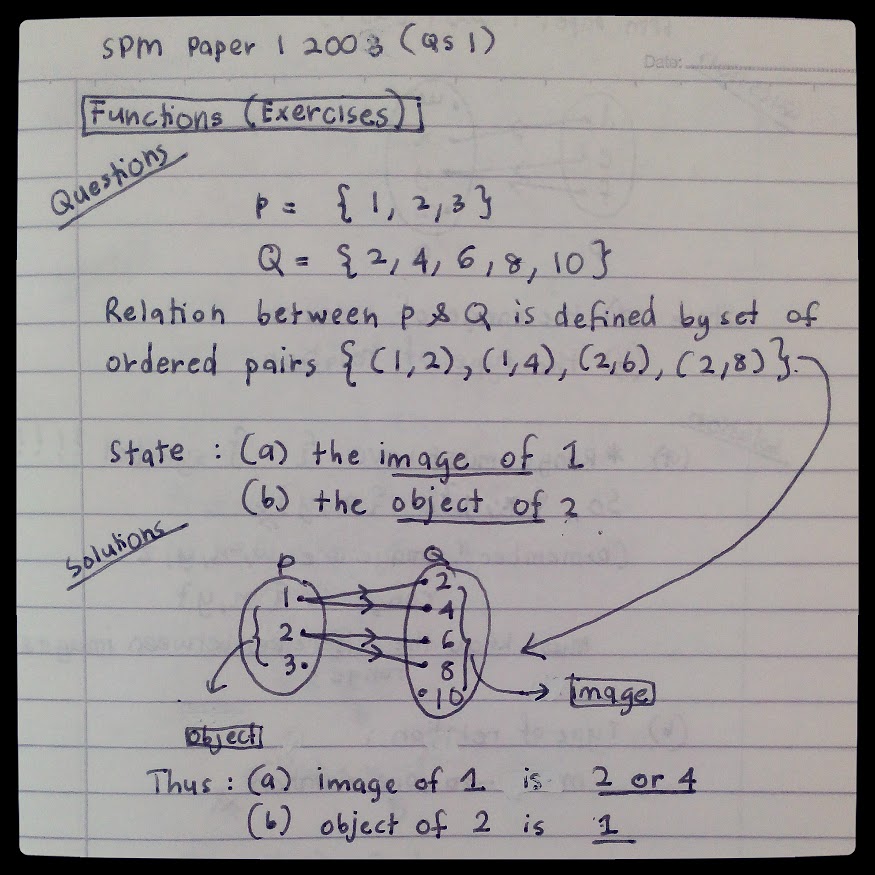 SPM Paper 1 2003 (Qs 1)
Date:
Functions (Exercises)
Questions
P = { 1, 2, 3 }
Q = { 2, 4, 6, 8, 10 }
Relation between P & Q is defined by set of
ordered pairs { (1,2), (1,4), (2,6), (2,8) }.
State : (a) the image of 1
(b) the object of 2
Solutions
P Q
1 2
4
2 6
3 8
10
image
object
Thus : (a) image of 1 is 2 or 4
(b) object of 2 is 1